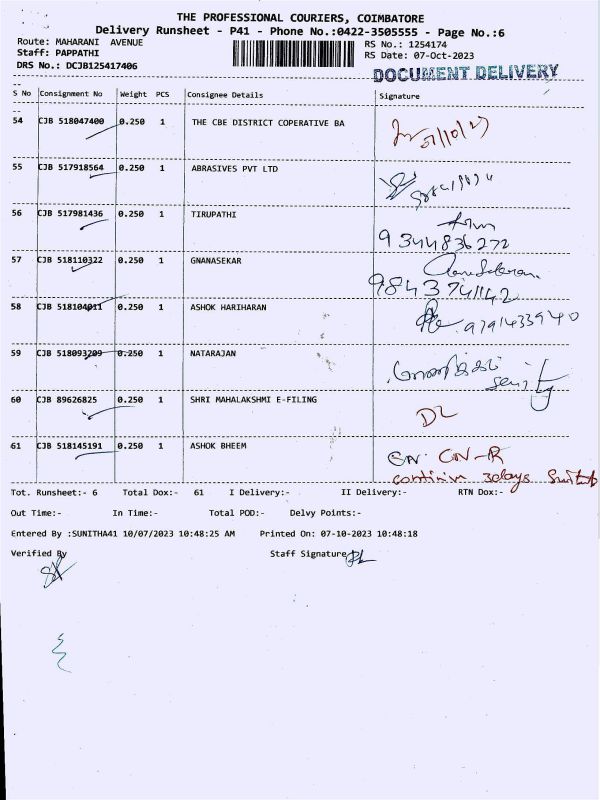 THE PROFESSIONAL COURIERS, COIMBATORE
Delivery Runsheet - P41 - Phone No.:0422-3505555 - Page No.:6
Route: MAHARANI AVENUE
Staff: PAPPATHI
DRS No.: DCJB125417406
RS No.: 1254174
RS Date: 07-Oct-2023
DOCUMENT DELIVERY
S No Consignment No Weight PCS Consignee Details Signature
54 CJB 518047400 0.250 1 THE CBE DISTRICT COPERATIVE BA
55 CJB 517918564 0.250 1 ABRASIVES PVT LTD
56 CJB 517981436 0.250 1 TIRUPATHI
9344836272
57 CJB 518110322 0.250 1 GNANASEKAR
9843741142
58 CJB 518104011 0.250 1 ASHOK HARIHARAN
9791433940
59 CJB 518093209 0.250 1 NATARAJAN
60 CJB 89626825 0.250 1 SHRI MAHALAKSHMI E-FILING
DL
61 CJB 518145191 0.250 1 ASHOK BHEEM
CN-R
3days
Tot. Runsheet:- 6 Total Dox:- 61 I Delivery:- II Delivery:- RTN Dox:-
Out Time:- In Time:- Total POD:- Delvy Points:-
Entered By :SUNITHA41 10/07/2023 10:48:25 AM Printed On: 07-10-2023 10:48:18
Verified By Staff Signature